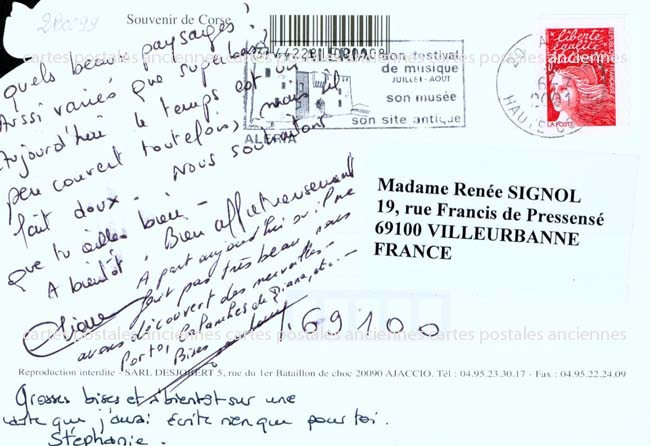 2B0099
Souvenir de Corse
quels beaux paysages!
Aussi variés que superbes!
Aujourd'hui le temps est un
peu couvert toutefois, mais il
fait doux - Nous souhaitons
que tu ailles bien -
A bientôt, Bien affectueusement
Liane
A part aujourd'hui où il ne
fait pas très beau, nous
avons découvert des merveilles -
Porto, Calanches de Piana, etc. -
Bises
son festival
de musique
JUILLET - AOUT
son musée
son site antique
ALERIA
HAUTE
liberté
égalité
LA POSTE
Madame Renée SIGNOL
19, rue Francis de Pressensé
69100 VILLEURBANNE
FRANCE
69100
cartes postales anciennes cartes postales anciennes cartes postales anciennes
cartes postales anciennes cartes postales anciennes cartes postales anciennes
Reproduction interdite - SARL DESJOBERT 5, rue du 1er Bataillon de choc 20090 AJACCIO. Tél : 04.95.23.30.17 - Fax : 04.95.22.24.09
Grosses bises et à bientôt sur une
carte que j'aurai écrite rien que pour toi.
Stéphanie.